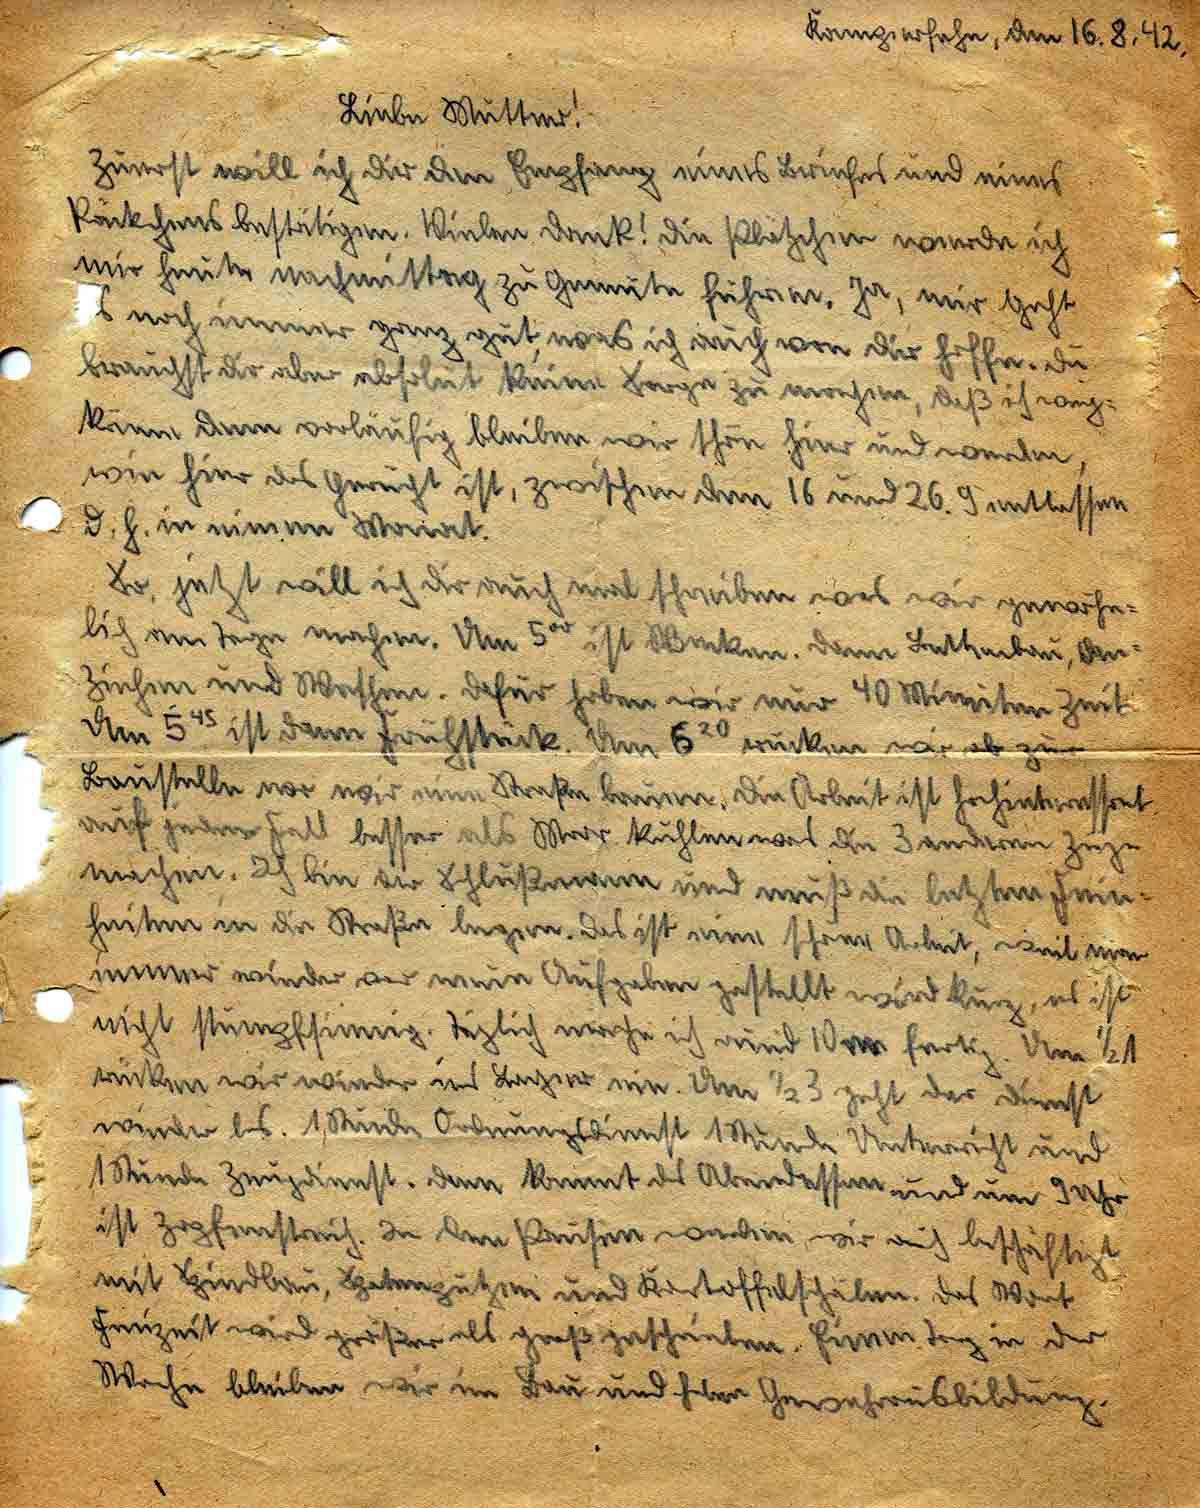 Kampierfehn, den 16.8.42.
Liebe Mutter!
Zuerst will ich dir den Empfang eines Briefes und eines
Päckchens bestätigen. Vielen Dank! Die Plätzchen werde ich
mir heute nachmittag zu Gemüte führen. Ja, mir geht
s noch immer ganz gut, was ich auch von dir hoffe. Du
brauchst dir aber absolut keine Sorge zu machen, daß ich weg-
käme denn vorläufig bleiben wir schön hier und werden,
wie hier das Gerücht ist, zwischen dem 16 und 26.9 entlassen
d.h. in einem Monat.
So, jetzt will ich dir auch mal schreiben was wir gewöhn-
lich am Tage machen. Um 5⁰⁰ ist Wecken. Dann Bettenbau, An-
ziehen und Waschen. Dafür haben wir nur 40 Minuten Zeit.
Um 5⁴⁵ ist dann Frühstück. Um 6²⁰ rücken wir ab zur
Baustelle wo wir eine Straße bauen. Die Arbeit ist hochinteressant
auf jeden Fall besser als Moor kuhlen was die 3 anderen Züge
machen. Ich bin der Schlußmann und muß die letzten Fein-
heiten in die Straße legen. Das ist eine schöne Arbeit, weil man
immer wieder vor neue Aufgaben gestellt wird kurz, es ist
nicht stumpfsinnig. Täglich mache ich rund 10 m fertig. Um ½1
rücken wir wieder ins Lager ein. Um ½3 geht der Dienst
wieder los. 1 Stunde Ordnungsdienst 1 Stunde Unterricht und
1 Stunde Zeugdienst. Dann kommt das Abendessen und um 9 Uhr
ist Zapfenstreich. In den Pausen werden wir auch beschäftigt
mit Spindbau, Spatenputzen und Kartoffelschälen. Das Wort
Freizeit wird größer als groß geschrieben. Einen Tag in der
Woche bleiben wir im Bau und haben Gewehrausbildung.